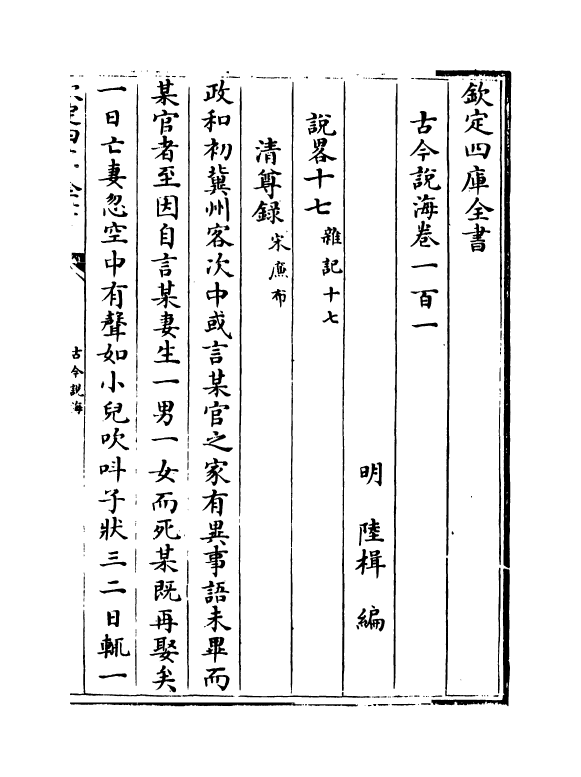 欽定四庫全書
古今說海卷一百一
明 陸楫 編
說畧十七 雜記十七
清尊録 宋廉布
政和初冀州客次中或言某官之家有異事語未畢而
某官者至因自言某妻生一男一女而死某既再娶矣
一日亡妻忽空中有聲如小兒吹呌子狀三二日輒一
古今說海